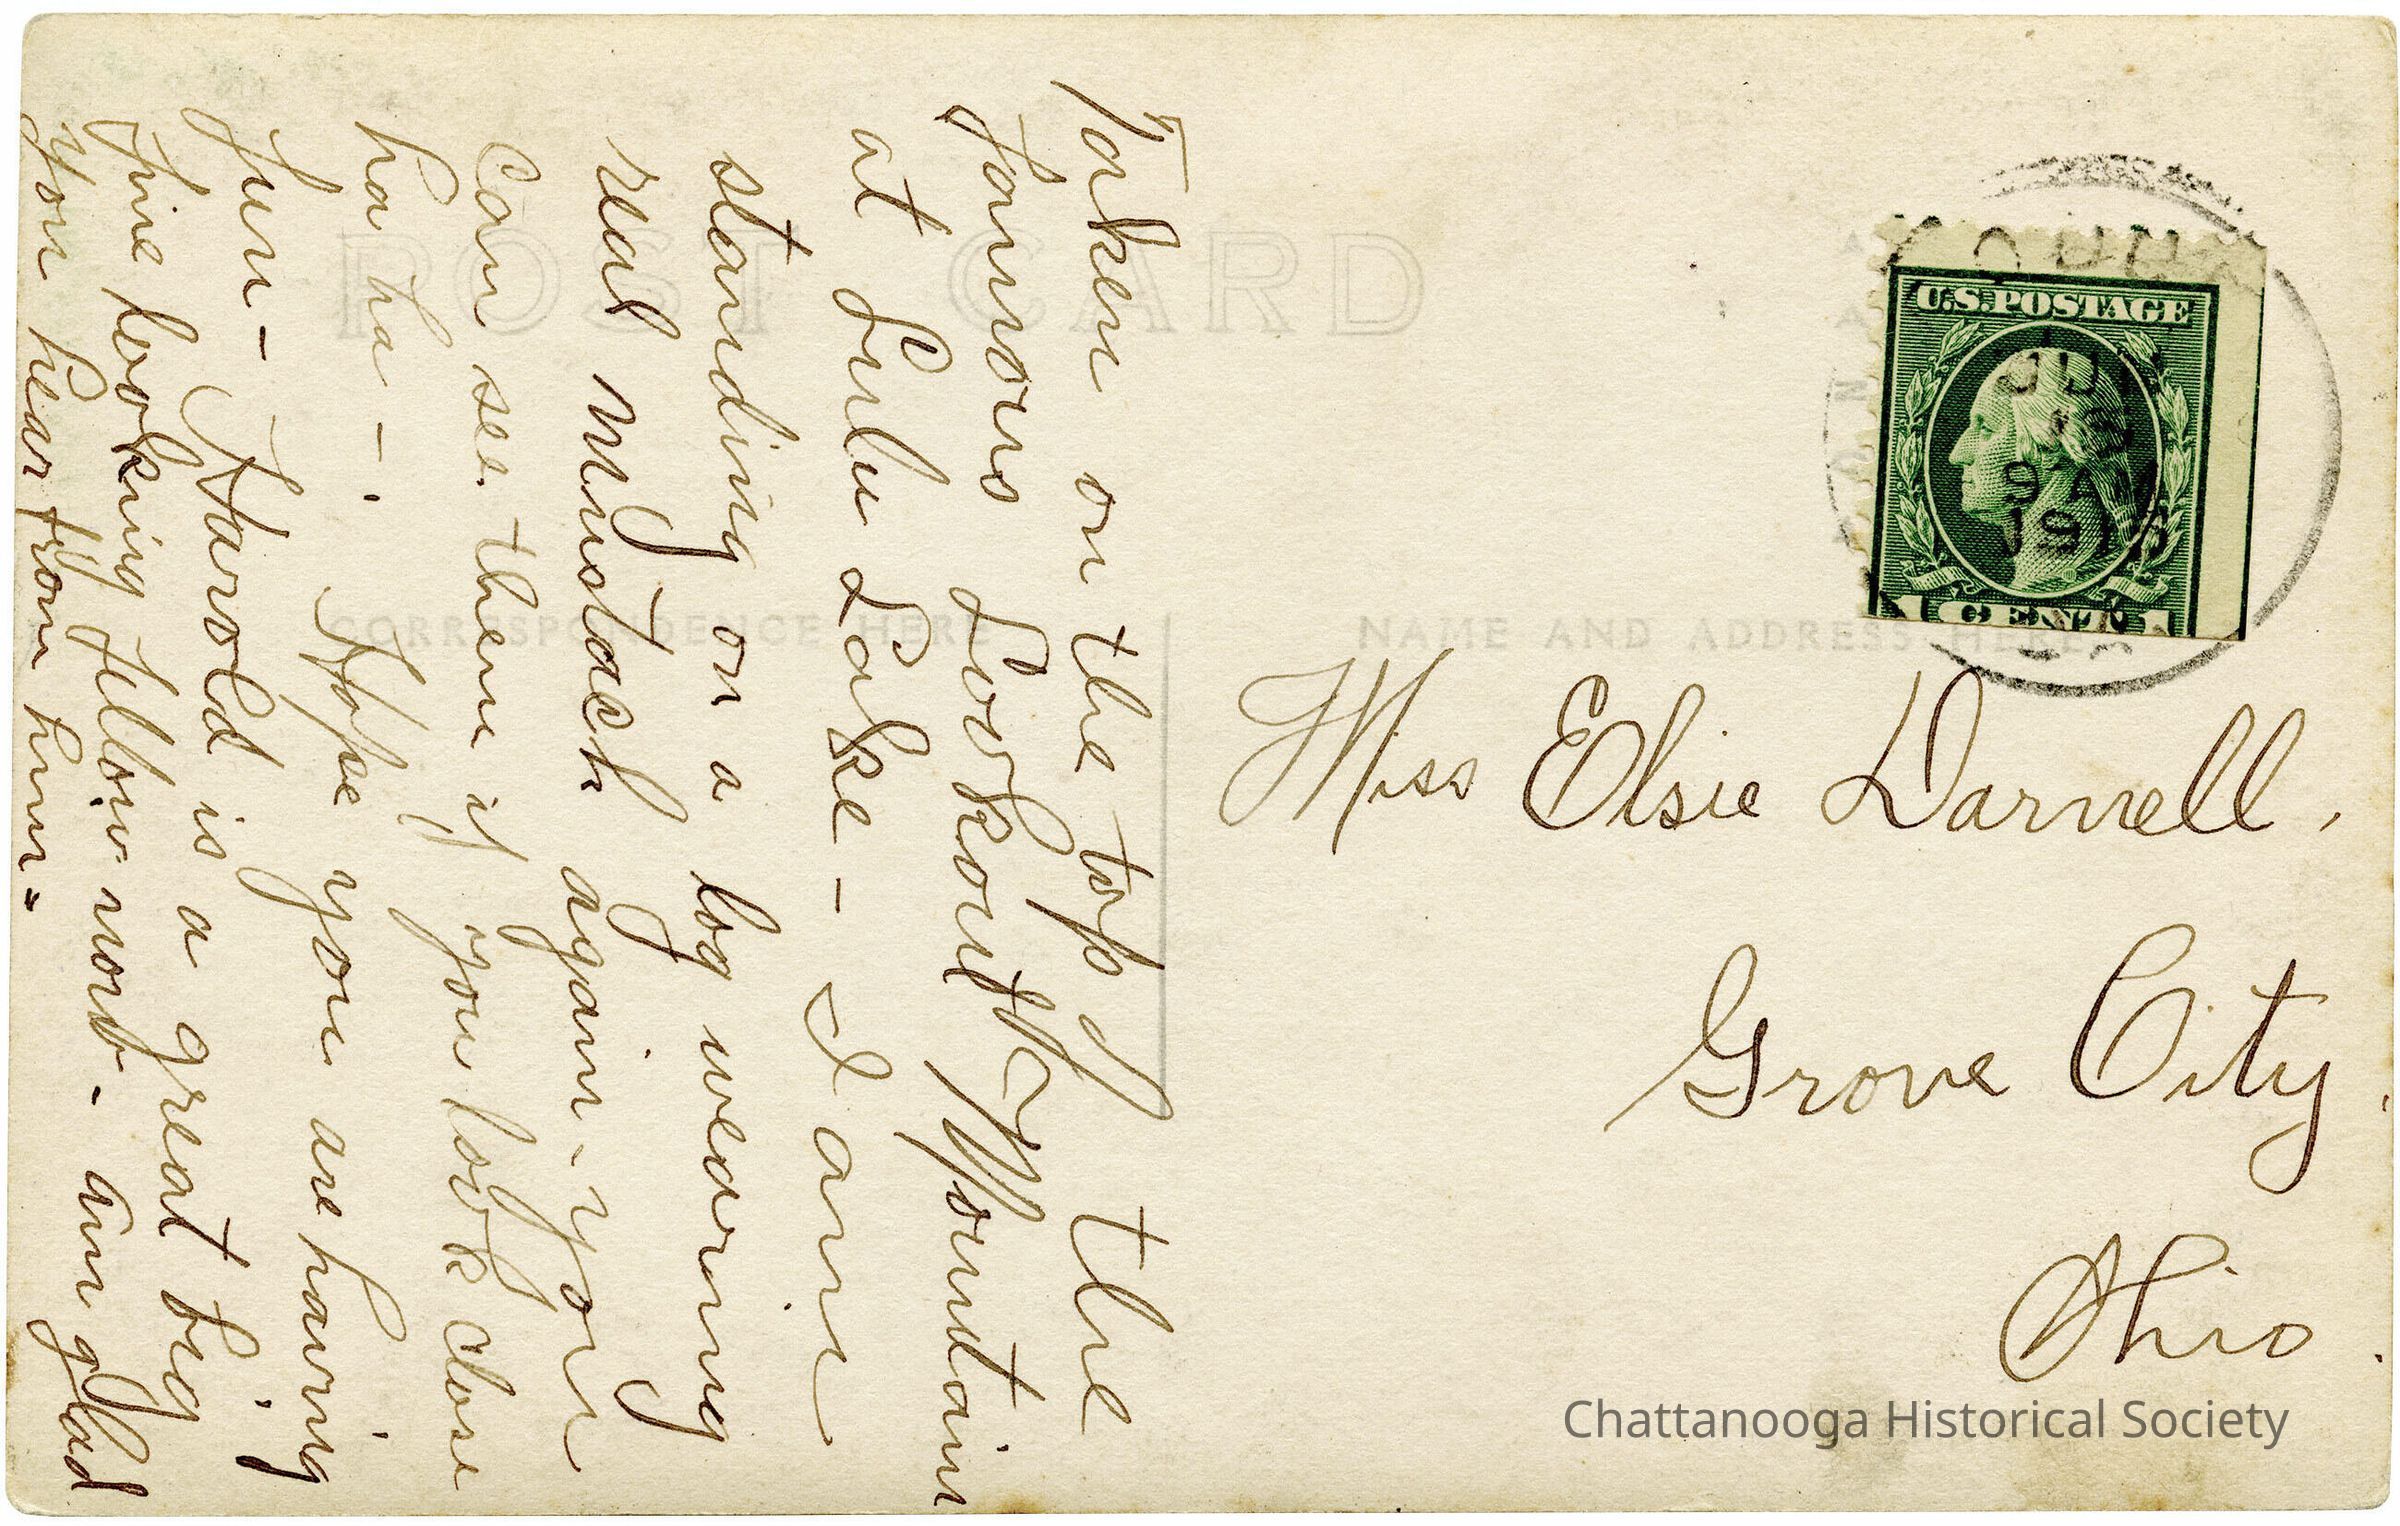 POST CARD
CORRESPONDENCE HERE
NAME AND ADDRESS HERE
Taken on the top of the
famous Lookout Mountain
at Lulu Lake - I am
standing on a log wearing
real mustach again - you
can see them if you look close
ha ha -.
Hope you are having
fun - Harold is a great big
fine looking fellow now - am glad
you hear from him =
U.S. POSTAGE
JUL
9 A
1 CENT 1
Miss Elsie Darnell.
Grove City.
Ohio.
Chattanooga Historical Society